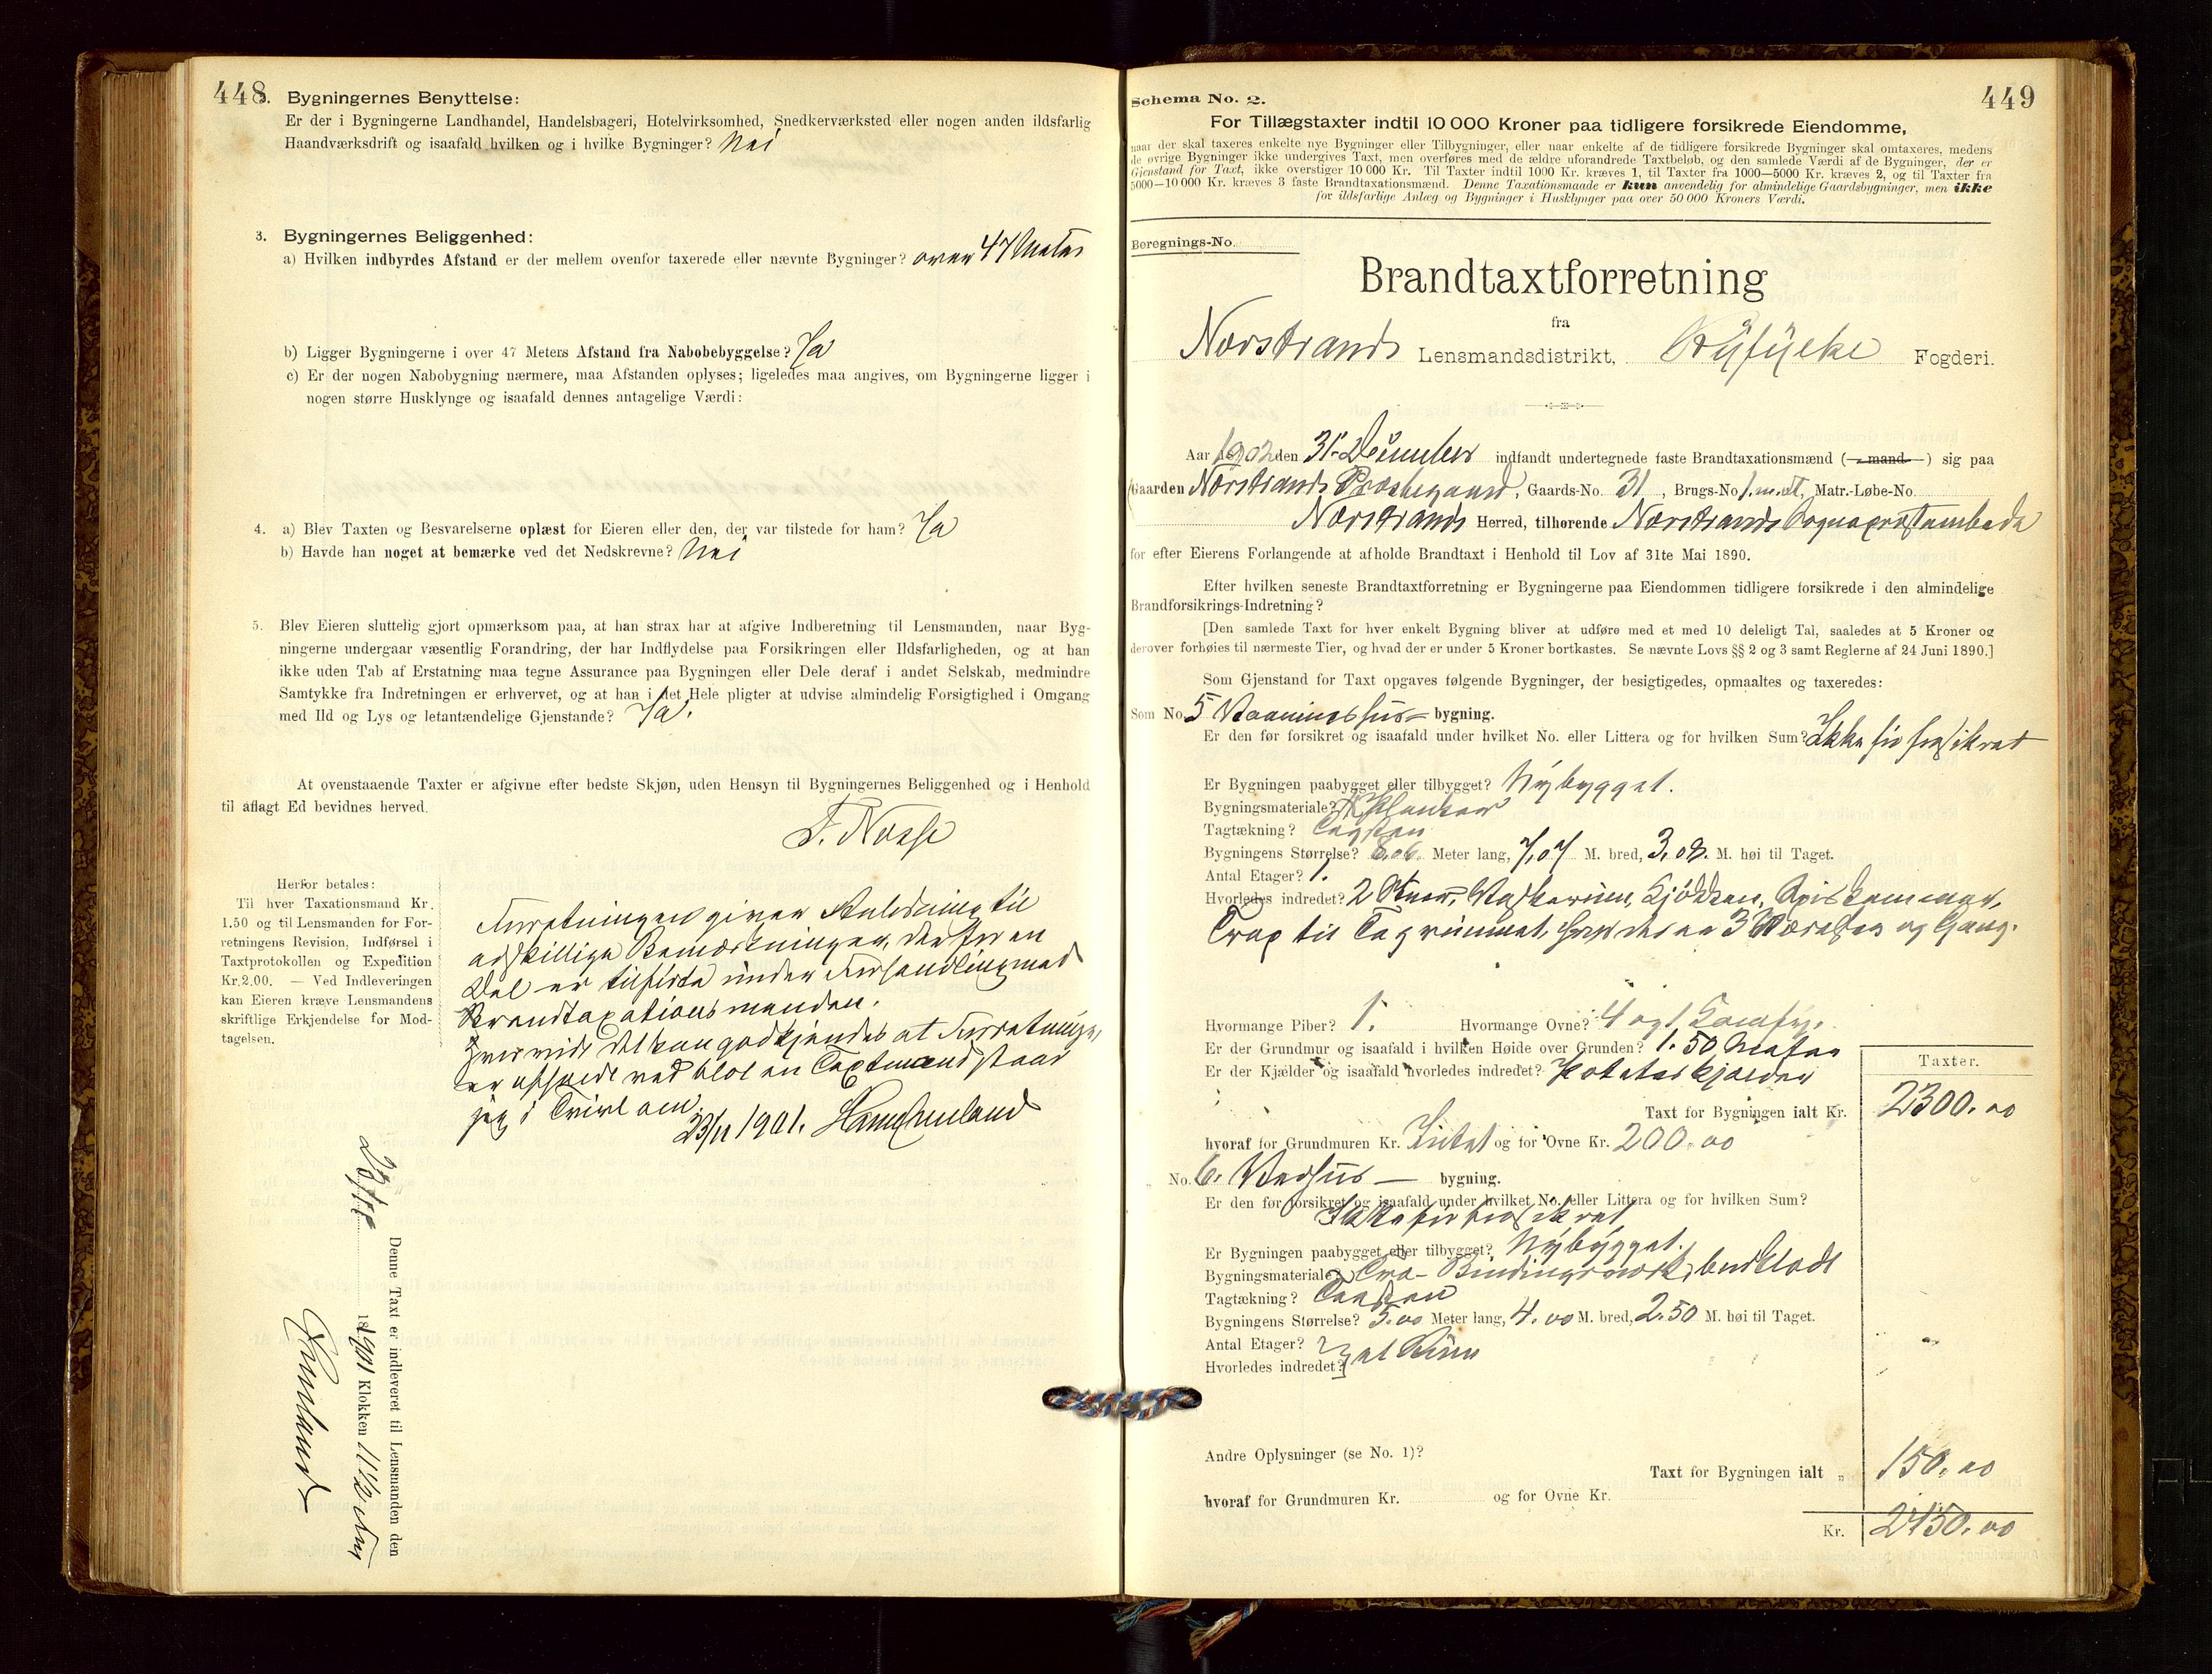 448
2. Bygningernes Benyttelse:
Er der i Bygningerne Landhandel, Handelsbageri, Hotelvirksomhed, Snedkerværksted eller nogen anden ildsfarlig
Haandværksdrift og isaafald hvilken og i hvilke Bygninger? Nei
3. Bygningernes Beliggenhed:
a) Hvilken indbyrdes Afstand er der mellem ovenfor taxerede eller nævnte Bygninger? over 47 Meter
b) Ligger Bygningerne i over 47 Meters Afstand fra Nabobebyggelse? Ja
c) Er der nogen Nabobygning nærmere, maa Afstanden oplyses; ligeledes maa angives, om Bygningerne ligger i
nogen større Husklynge og isaafald dennes antagelige Værdi:
4. a) Blev Taxten og Besvarelserne oplæst for Eieren eller den, der var tilstede for ham? Ja
b) Havde han noget at bemærke ved det Nedskrevne? Nei
5. Blev Eieren sluttelig gjort opmærksom paa, at han strax har at afgive Indberetning til Lensmanden, naar Byg-
ningerne undergaar væsentlig Forandring, der har Indflydelse paa Forsikringen eller Ildsfarligheden, og at han
ikke uden Tab af Erstatning maa tegne Assurance paa Bygningen eller Dele deraf i andet Selskab, medmindre
Samtykke fra Indretningen er erhvervet, og at han i det Hele pligter at udvise almindelig Forsigtighed i Omgang
med Ild og Lys og letantændelige Gjenstande? Ja.
At ovenstaaende Taxter er afgivne efter bedste Skjøn, uden Hensyn til Bygningernes Beliggenhed og i Henhold
til aflagt Ed bevidnes herved.
Herfor betales:
Til hver Taxationsmand Kr.
1.50 og til Lensmanden for For-
retningens Revision, Indførsel i
Taxtprotokollen og Expedition
Kr. 2.00. — Ved Indleveringen
kan Eieren kræve Lensmandens
skriftlige Erkjendelse for Mod-
tagelsen.
Forretningen giver Anledning til
adskillige Bemærkninger, der for en
Del er tilførte under Forhandling med
Brandtaxationsmanden.
Hvorvidt det kan godkjendes at Forretningen
er afholdt ved blot en Taxtmand staar
jeg i Tvivl om.
23/11 1901.
Denne Taxt er indleveret til Lensmanden den
23/11 1901 Klokken 11 1/2
449
Schema No. 2.
For Tillægstaxter indtil 10 000 Kroner paa tidligere forsikrede Eiendomme,
naar der skal taxeres enkelte nye Bygninger eller Tilbygninger, eller naar enkelte af de tidligere forsikrede Bygninger skal omtaxeres, medens
de øvrige Bygninger ikke undergives Taxt, men overføres med de ældre uforandrede Taxtbeløb, og den samlede Værdi af de Bygninger, der er
Gjenstand for Taxt, ikke overstiger 10 000 Kr. Til Taxter indtil 1000 Kr. kræves 1, til Taxter fra 1000—5000 Kr. kræves 2, og til Taxter fra
5000—10 000 Kr. kræves 3 faste Brandtaxationsmænd. Denne Taxationsmaade er kun anvendelig for almindelige Gaardsbygninger, men ikke
for ildsfarlige Anlæg og Bygninger i Husklynger paa over 50 000 Kroners Værdi.
Beregnings-No.
Brandtaxtforretning
fra
Nærstrands Lensmandsdistrikt, Ryfylke Fogderi.
Aar 1902 den 31 December indfandt undertegnede faste Brandtaxationsmænd (-mand-) sig paa
Gaarden Nærstrands Præstegaard, Gaards-No. 31, Brugs-No 1, Matr.-Løbe-No.
Nærstrands Herred, tilhørende Nærstrands Sognepræstembede
for efter Eierens Forlangende at afholde Brandtaxt i Henhold til Lov af 31te Mai 1890.
Efter hvilken seneste Brandtaxtforretning er Bygningerne paa Eiendommen tidligere forsikrede i den almindelige
Brandforsikrings-Indretning?
[Den samlede Taxt for hver enkelt Bygning bliver at udføre med et med 10 deleligt Tal, saaledes at 5 Kroner og
derover forhøies til nærmeste Tier, og hvad der er under 5 Kroner bortkastes. Se nævnte Lovs §§ 2 og 3 samt Reglerne af 24 Juni 1890.]
Som Gjenstand for Taxt opgaves følgende Bygninger, der besigtigedes, opmaaltes og taxeredes:
Som No. 5 Vaaningshus- bygning.
Er den før forsikret og isaafald under hvilket No. eller Littera og for hvilken Sum? Ikke før forsikret
Er Bygningen paabygget eller tilbygget? Nybygget.
Bygningsmateriale? Planker
Tagtækning? Tagsten
Bygningens Størrelse? 8.06 Meter lang, 7.07 M. bred, 3.08. M. høi til Taget.
Antal Etager? 1.
Hvorledes indredet? 2 Stuer, Kjøkken, Spiskammer,
Trap til Tagrummet, 3 Værelser og Gang.
Hvormange Piber? 1. Hvormange Ovne? 4 og 1 Komfyr.
Er der Grundmur og isaafald i hvilken Høide over Grunden? 1.50 Meter
Er der Kjælder og isaafald hvorledes indredet? Potetes kjælder
Taxter.
Taxt for Bygningen ialt Kr. 2300.00
hvoraf for Grundmuren Kr. Intet og for Ovne Kr. 200.00
" No. 6. Vedhus — bygning.
Er den før forsikret og isaafald under hvilket No. eller Littera og for hvilken Sum?
Ikke før forsikret
Er Bygningen paabygget eller tilbygget? Nybygget.
Bygningsmateriale? Træ- Bindingsværk, bordklædt
Tagtækning? Tagsten
Bygningens Størrelse? 5.00 Meter lang, 4.00 M. bred, 2.50 M. høi til Taget.
Antal Etager?
Hvorledes indredet? Et Rum
Andre Oplysninger (se No. 1)?
Taxt for Bygningen ialt „ 150.00
hvoraf for Grundmuren Kr. og for Ovne Kr.
Kr. 2450.00